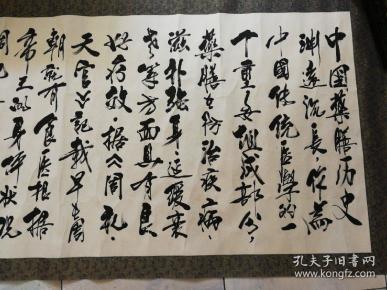 中国药膳历史
渊远流长，作为
中国传统医学的一
个重要组成部分，
药膳在防治疾病、
滋补强身延缓衰
老等方面具有良
好疗效。据《周礼·
天官》记载早在周
朝就有食医根据
帝王的身体状况
孔夫子旧书网
www.kongfz.com